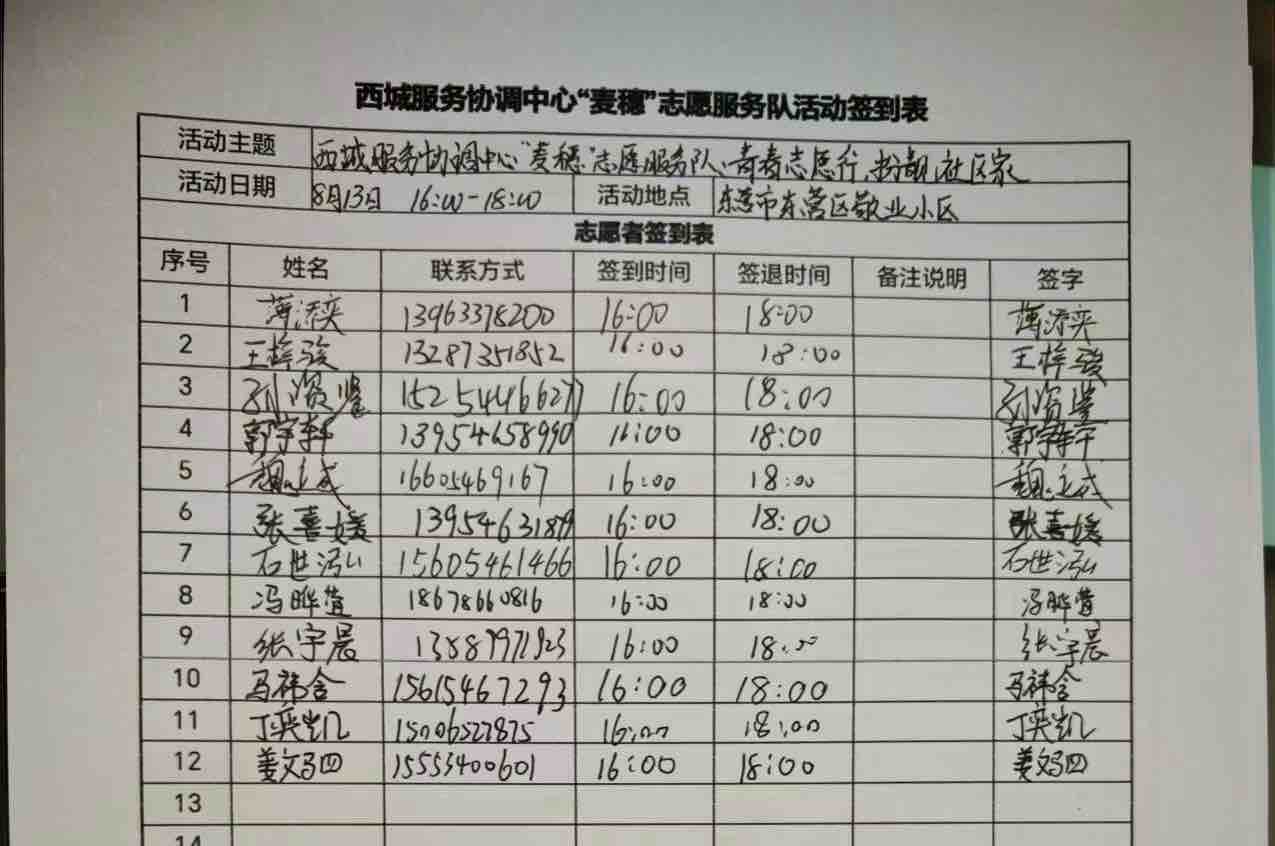 西城服务协调中心“麦穗”志愿服务队活动签到表
活动主题 西城服务协调中心“麦穗”志愿服务队、青春志愿行, 社区家
活动日期 8月13日 16:00-18:00 活动地点 东营市东营区敬业小区
志愿者签到表
序号 姓名 联系方式 签到时间 签退时间 备注说明 签字
1 薄添奕 13963378200 16:00 18:00 薄添奕
2 王梓骏 13287351852 16:00 18:00 王梓骏
3 16:00 18:00
4 郭宇轩 13954658990 16:00 18:00 郭宇轩
5 16605469167 16:00 18:00
6 张喜媛 16:00 18:00 张喜媛
7 石世泓 15605461466 16:00 18:00 石世泓
8 冯晔萱 18678660816 16:00 18:00 冯晔萱
9 张宇晨 16:00 18:00 张宇晨
10 马祎含 15615467293 16:00 18:00 马祎含
11 丁奕凯 15006527875 16:00 18:00 丁奕凯
12 姜文 15553400601 16:00 18:00 姜文
13
14